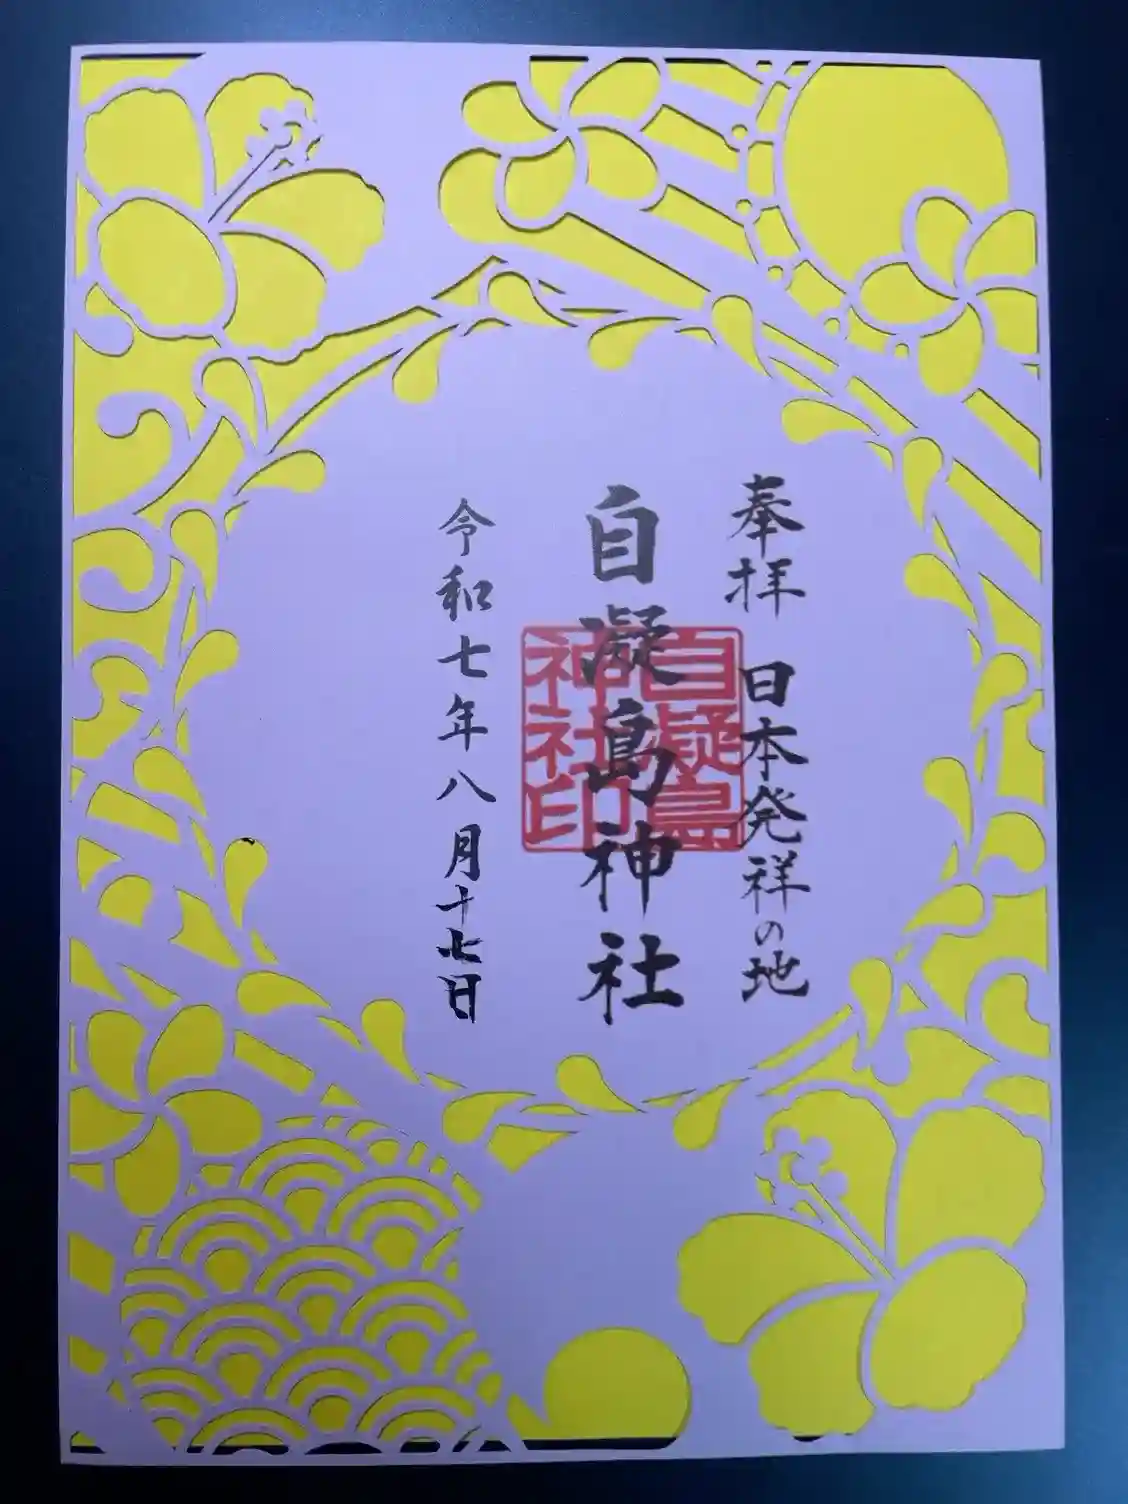 奉拝 日本発祥の地
自凝島神社
自凝島神社印
令和七年八月十七日